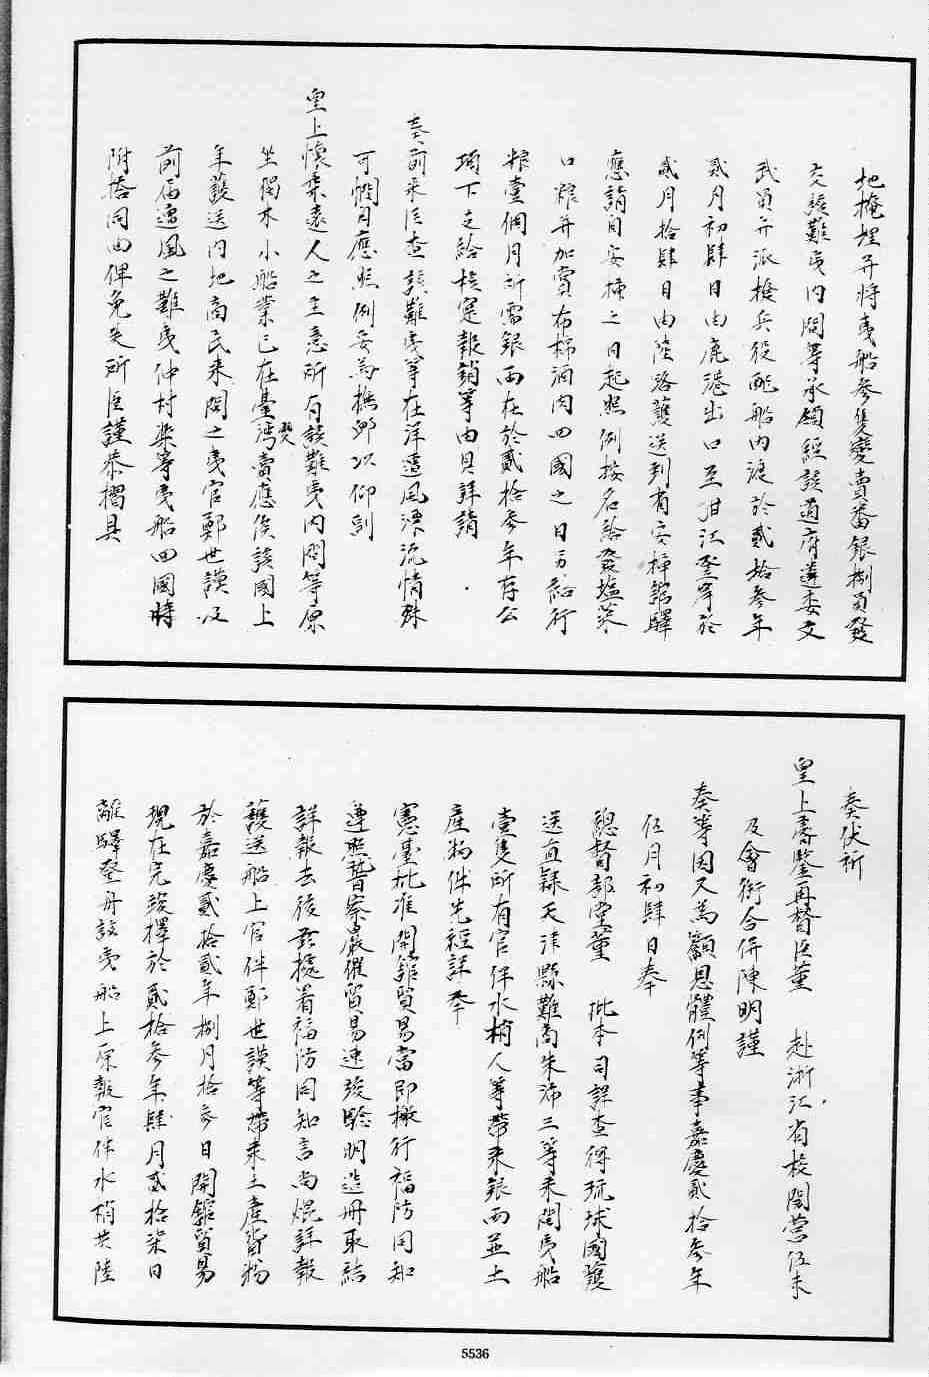 地掩埋并將夷船參隻變賣番銀捌員發
交該難夷內間等承領經該道府遴委文
武員弁派撥兵役配船內渡於貳拾參年
貳月初肆日由鹿港出口至蚶江登岸於
貳月拾肆日由陸路護送到省安揷舘驛
應請自安揷之日起照例按名給發塩菜
口粮并加賞布棉酒肉回國之日另給行
粮壹個月所需銀兩在於貳拾參年存公
項下支給核寔報銷等由具詳請
奏前來臣查該難夷等在洋遭風漂流情殊
可憫自應照例妥為撫卹以仰副
皇上懷柔遠人之至意所有該難夷內間等原
坐獨木小船業已在臺灣變賣應俟該國上
年護送內地商民來閩之夷官鄭世謨及
前屆遭風之難夷仲村渠等夷船回國時
附搭同由俾免失所臣謹恭摺具
奏伏祈
皇上睿鑒再督臣董 赴浙江省校閱營伍未
及會銜合併陳明謹
奏等因又為顯恩體例等事嘉慶貳拾參年
伍月初肆日奉
總督部堂董 批本司詳查得琉球國護
送直隸天津縣難商朱沛三等來閩夷船
壹隻所有官伴水梢人等帶來銀兩並土
產物件先經詳奉
憲臺批准開舘貿易當即檄行福防同知
遵照督察嚴催貿易速竣驗明造冊取結
詳報去後玆據署福防同知言尚焜詳報
護送船上官伴鄭世謨等帶來土產貨物
於嘉慶貳拾貳年捌月拾參日開舘貿易
現在完竣擇於貳拾參年肆月貳拾柒日
離驛登舟該夷船上原報官伴水梢共陸
5536